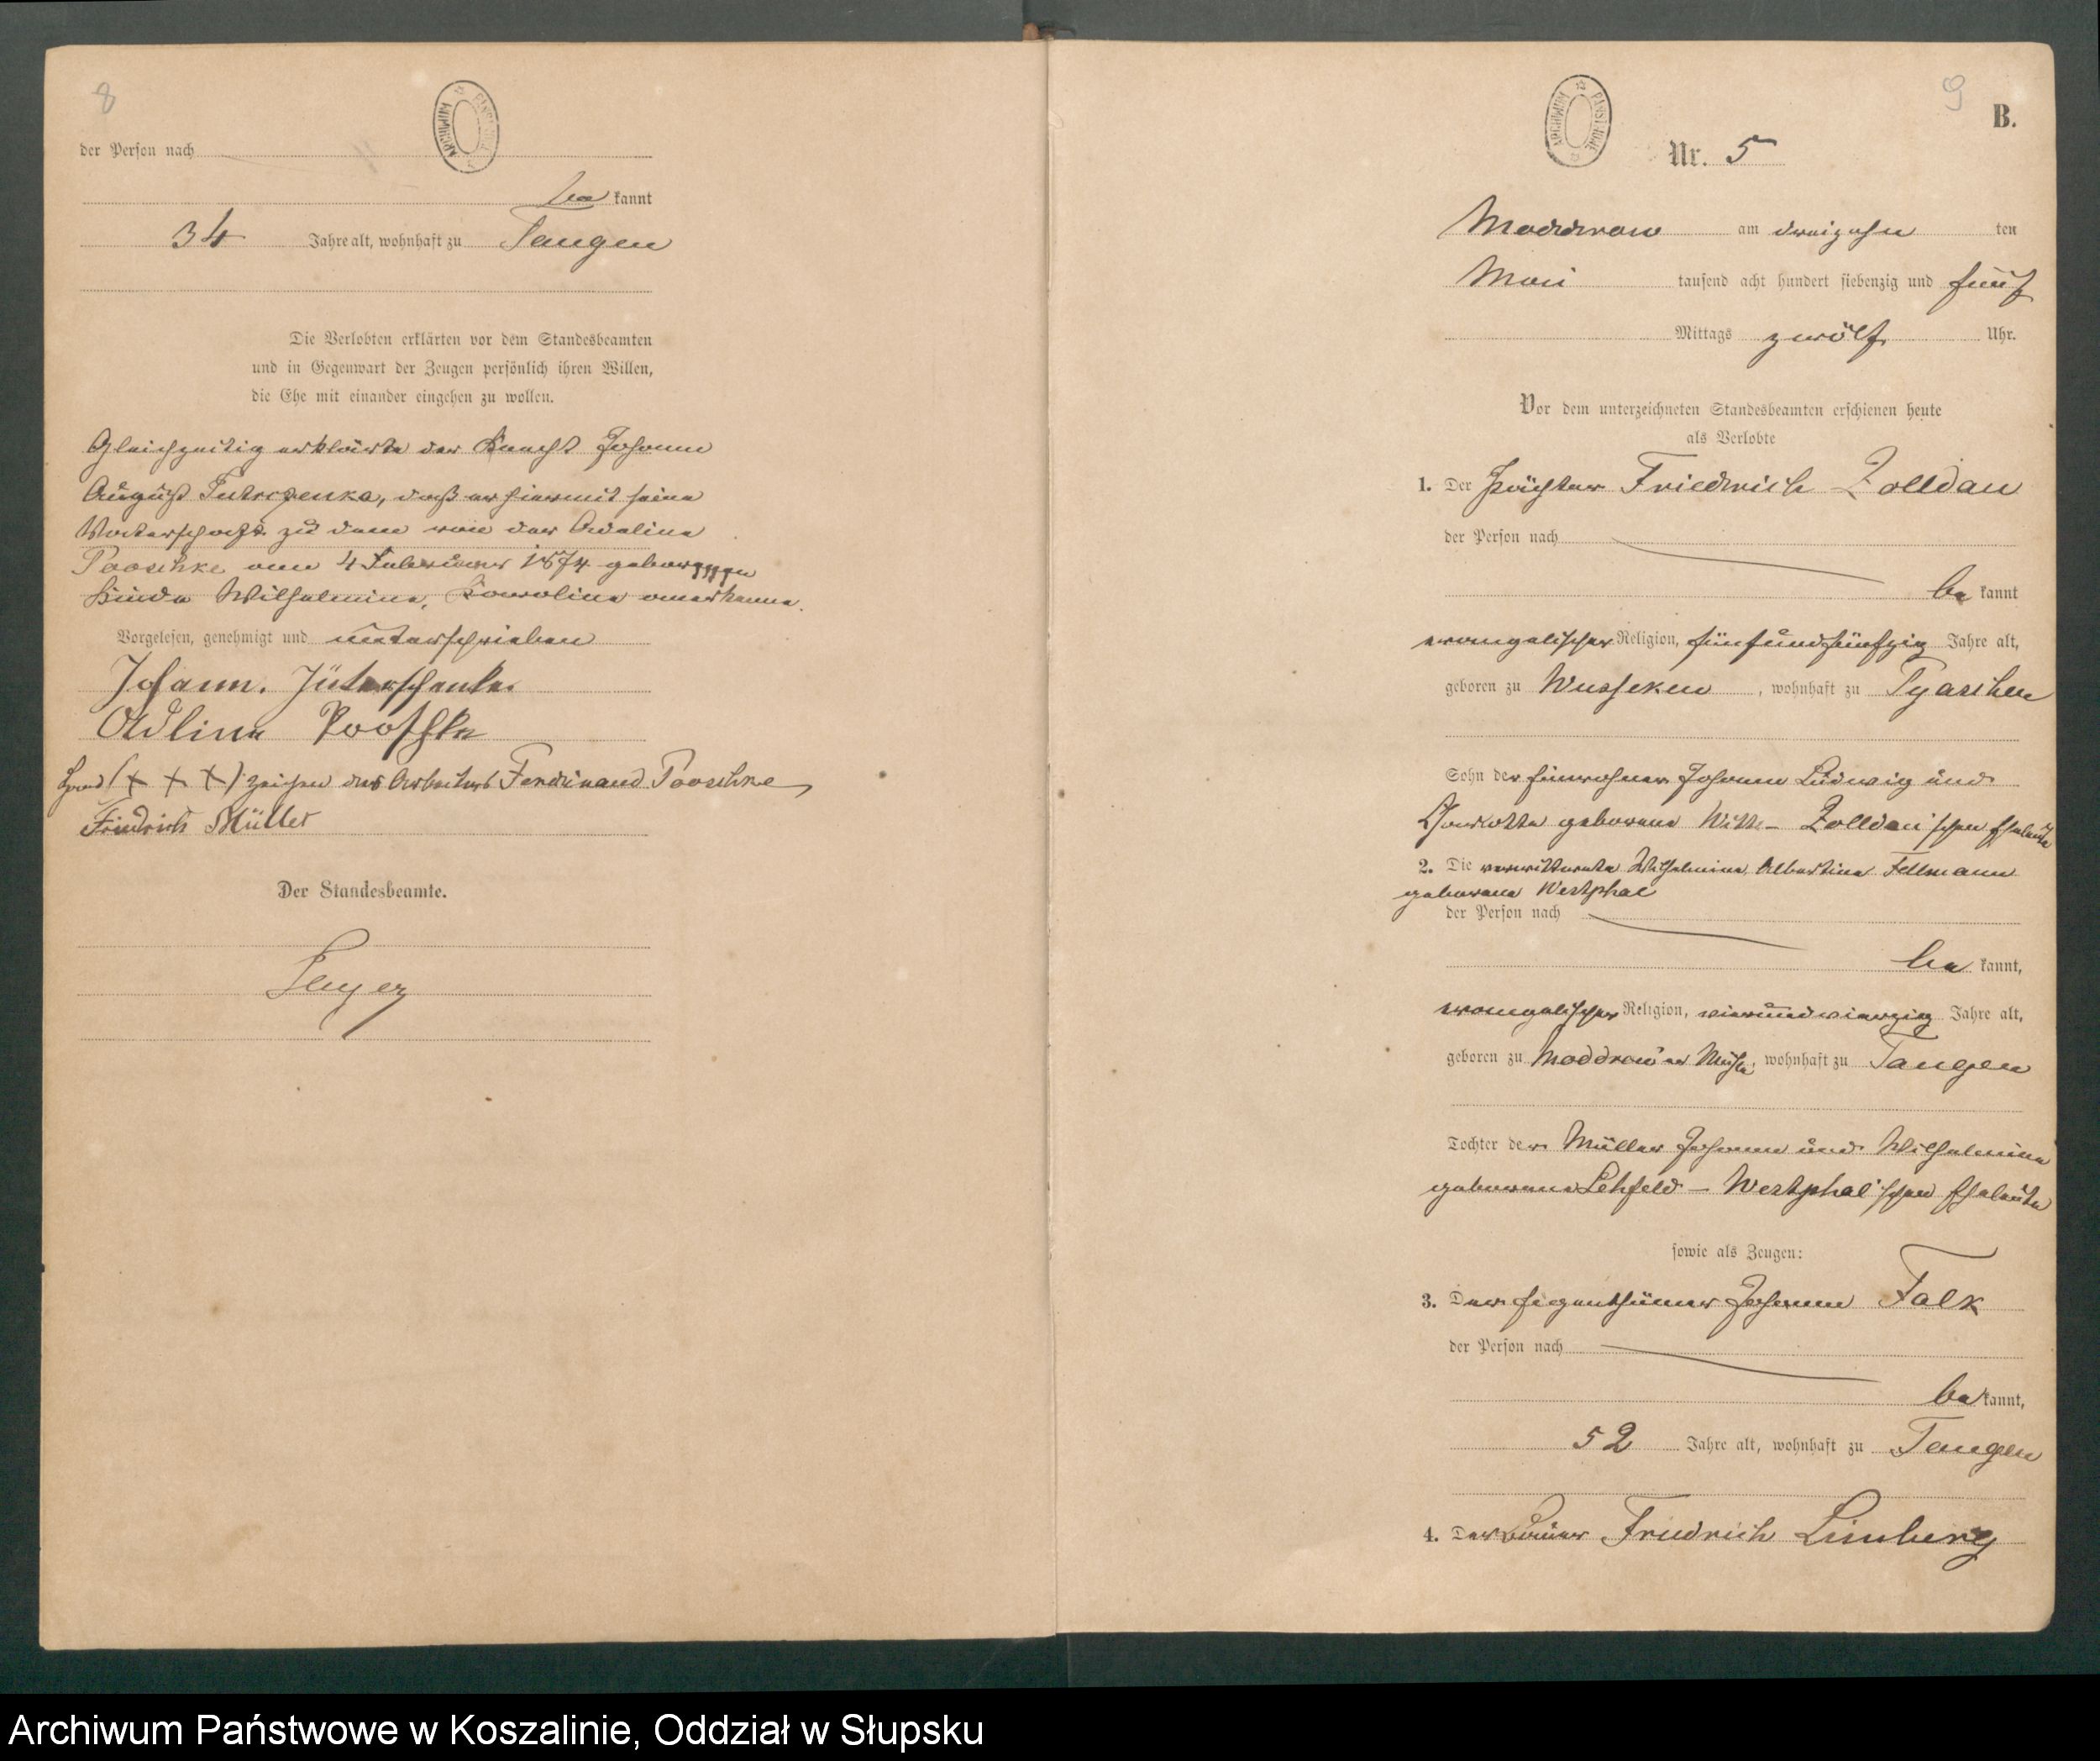 8
ARCHIWUM PAŃSTWOWE
der Person nach
bekannt
34 Jahre alt, wohnhaft zu Tangen
Die Verlobten erklärten vor dem Standesbeamten
und in Gegenwart der Zeugen persönlich ihren Willen,
die Ehe mit einander eingehen zu wollen.
Gleichzeitig erklärte der Knecht Johann
August, daß er hiermit seine
Vaterschaft zu dem von der Adeline
Paaschke am 4 Februar 1874 geborenen
Kinde Wilhelmine, Karoline anerkenne.
Vorgelesen, genehmigt und unterschrieben
Johann. Jüterschenke.
Adline Paaschke
Hand (+ + +) zeichen des Arbeiters Ferdinand Paaschke
Friedrich Müller
Der Standesbeamte.
9
B.
ARCHIWUM PAŃSTWOWE
Nr. 5
Moddrow am dreizehn ten
Mai tausend acht hundert siebenzig und fünf
Mittags zwölf Uhr.
Vor dem unterzeichneten Standesbeamten erschienen heute
als Verlobte
1. Der Pächter Friedrich Zolldan
der Person nach
bekannt
evangelischer Religion, fünfundfünfzig Jahre alt,
geboren zu Wusseken, wohnhaft zu Pyaschen
Sohn der Einwohner Johann Ludwig und
geborene Witt - Zolldan'schen Eheleute
2. Die verwittwete Wilhelmine Albertine Fellmann
geborene Westphal
der Person nach
bekannt,
evangelischer Religion, vierundvierzig Jahre alt,
geboren zu Moddrow'er Mühle, wohnhaft zu Tangen
Tochter der Müller Johann und Wilhelmine
geborene Lehfeld - Westphal'schen Eheleute
sowie als Zeugen:
3. Der Eigenthümer Johann Falk
der Person nach
bekannt,
52 Jahre alt, wohnhaft zu Tangen
4. Der Bauer Friedrich Limberg
Archiwum Państwowe w Koszalinie, Oddział w Słupsku